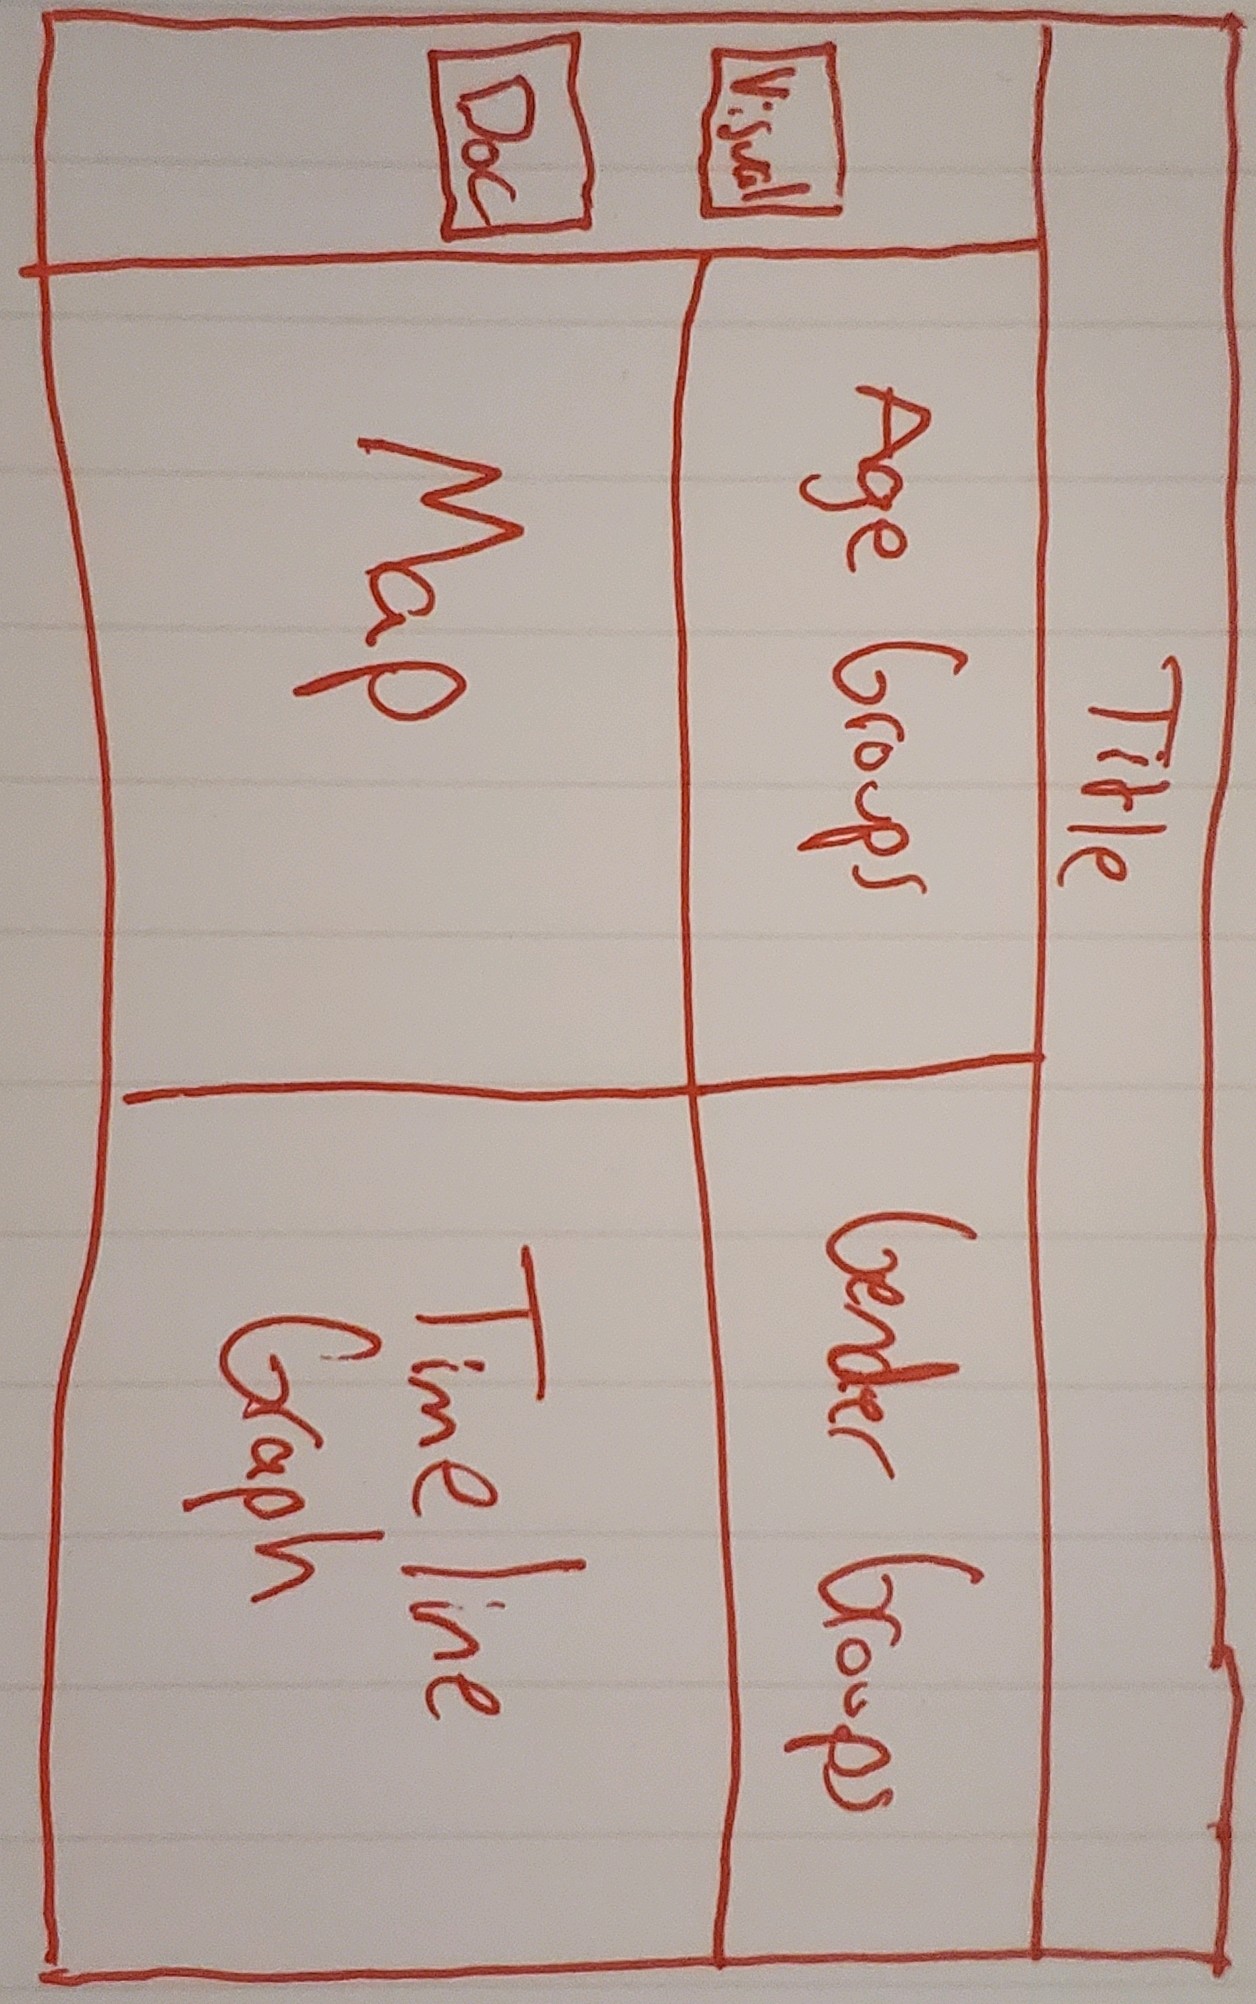 Title
Visual
Doc
Age Groups
Gender Groups
Map
Timeline
Graph